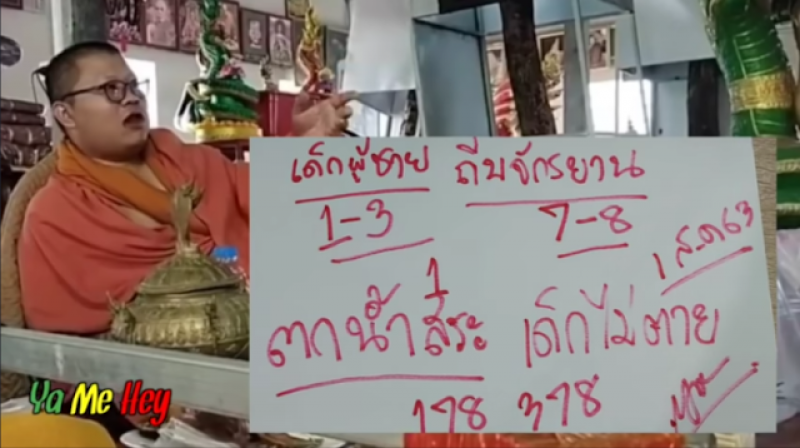 เด็กผู้ชาย ถีบจักรยาน
1-3 7-8
1 ส.ค 63
1
ตกน้ำสระ เด็กไม่ตาย
178 378
Ya Me Hey